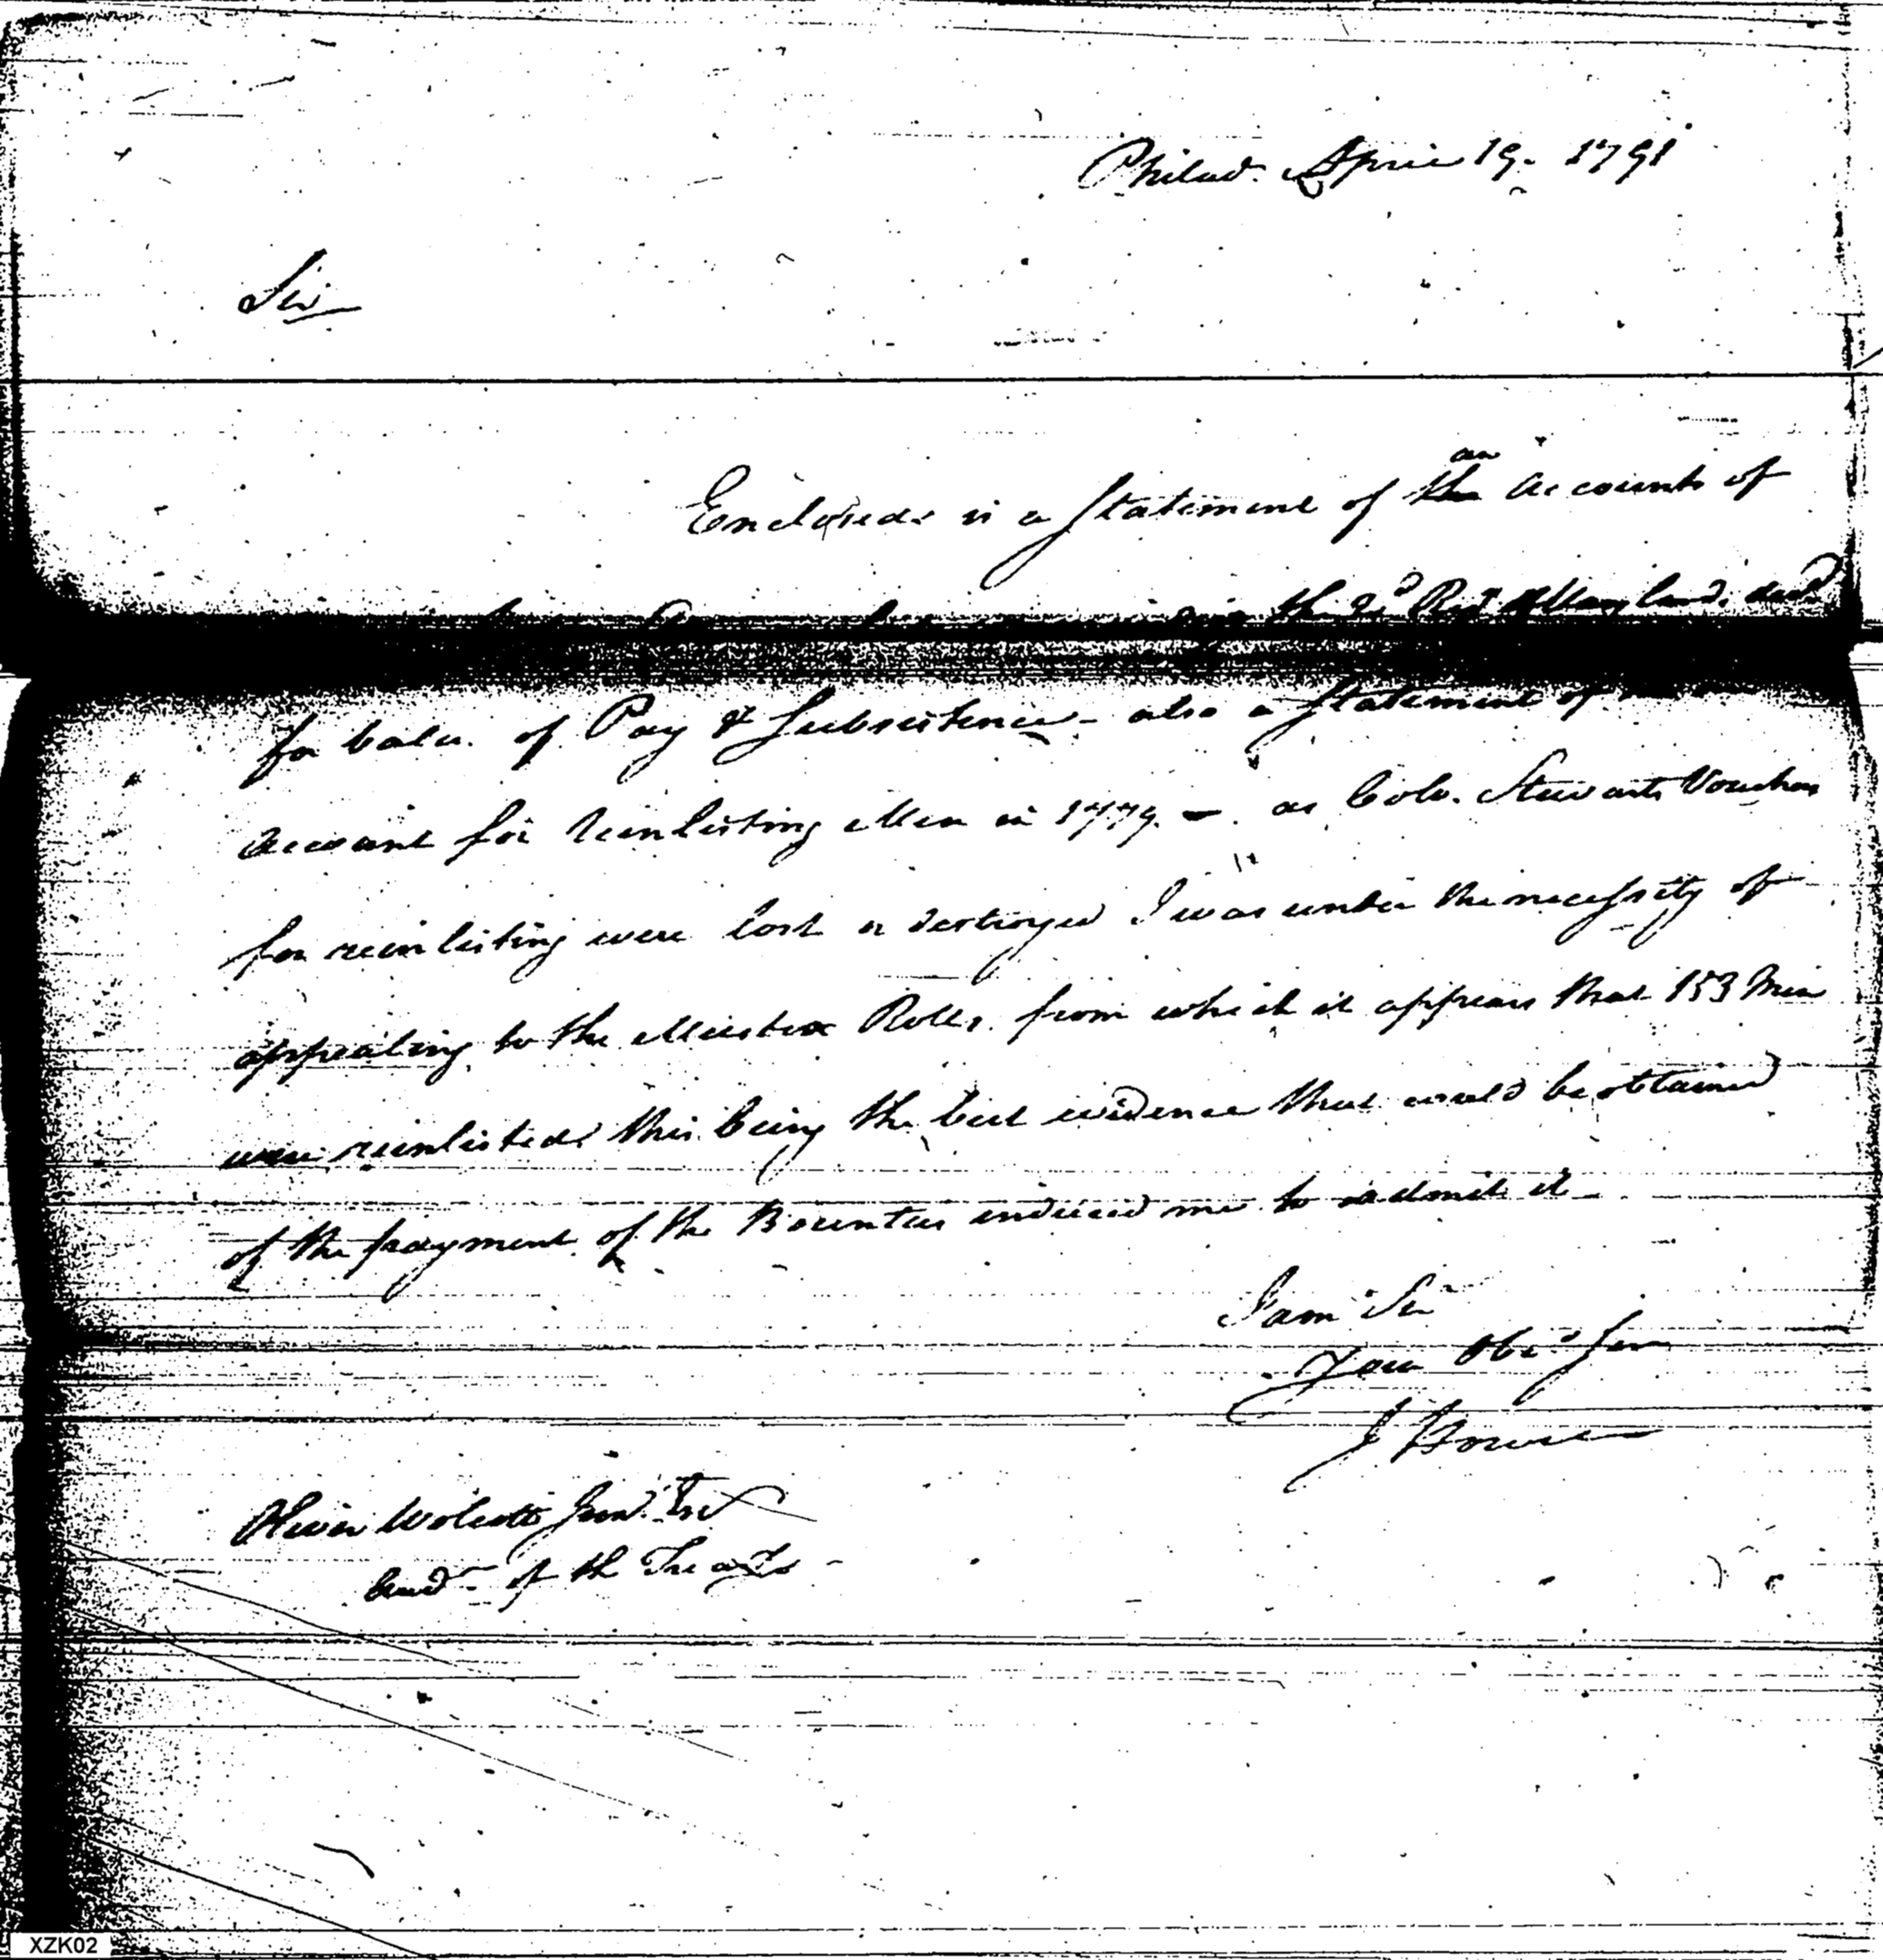 Philad. April 19. 1791
Sir
an
Enclosed is a Statement of the Accounts of
the 2d Regt Maryland. decd
for balce. of Pay & Subsistence - also a Statement of
Account for reinlisting Men in 1779. - as Colo. Stewarts Vouchers
for reinlisting were lost or destroyed I was under the necessity of
appealing to the Muster Rolls. from which it appears that 153 Men
were reinlisted this being the best evidence that could be obtained
of the payment of the Bounties induced me to admit it -
I am Sir
Your Obt. Serv
J Howell
Oliver Wolcott Junr. Esqr
Audr of the Treasy
XZK02